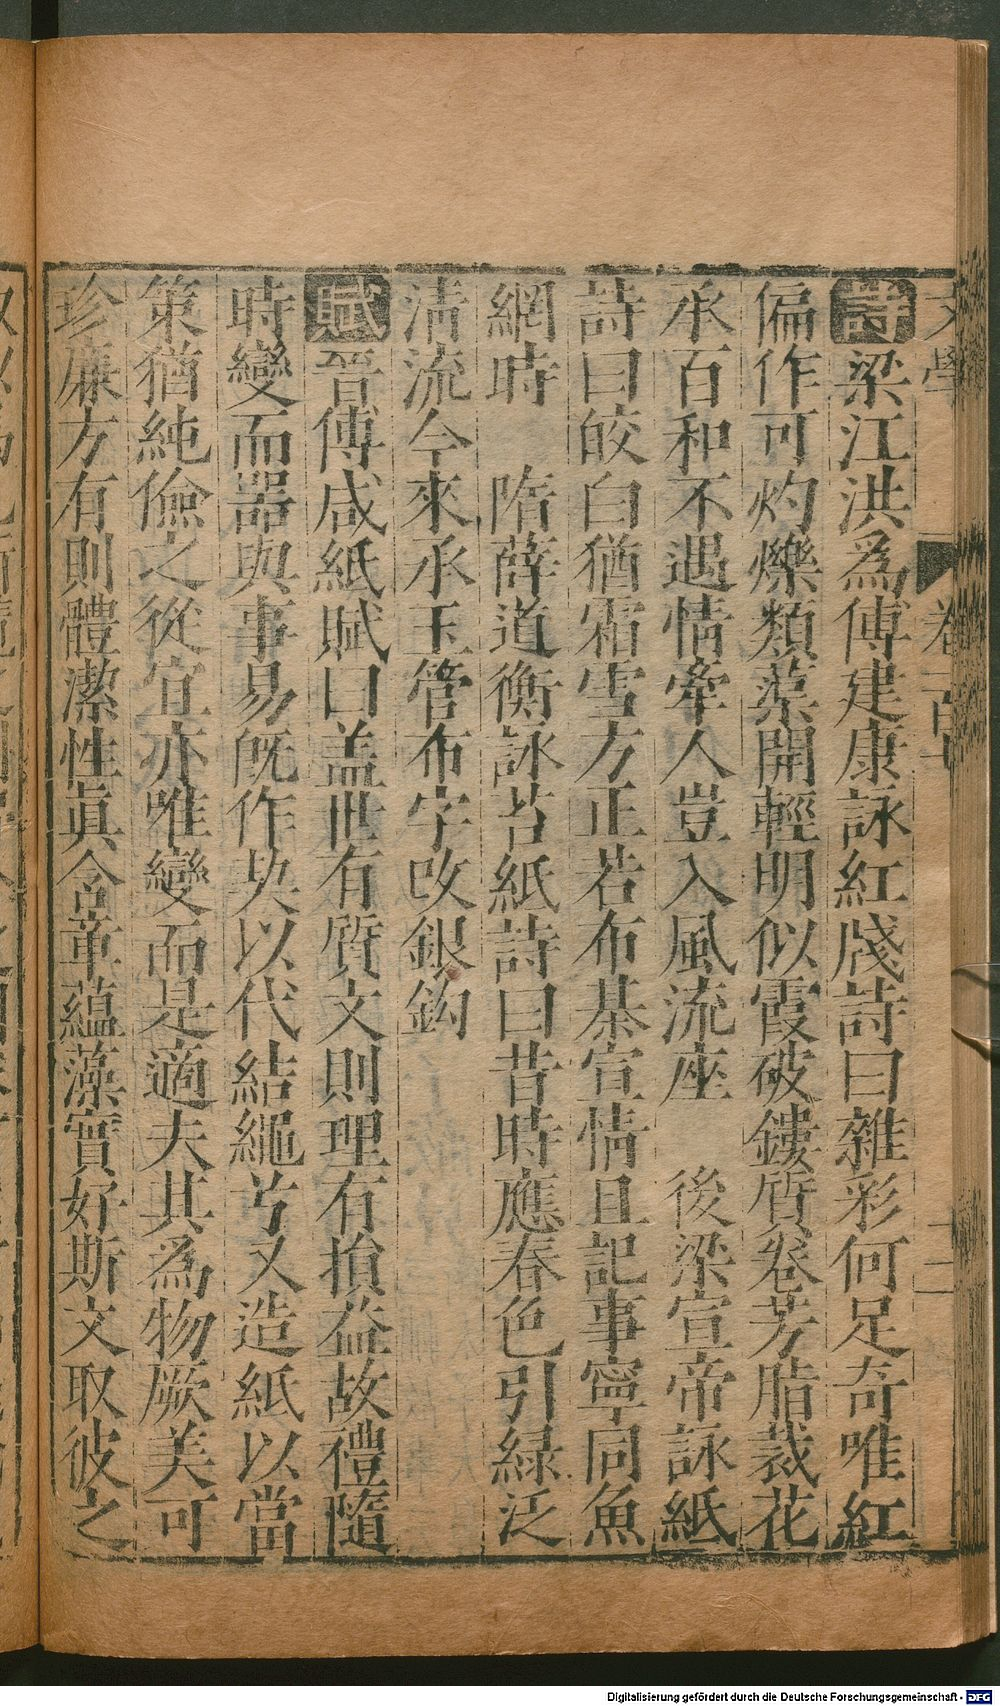 文學 卷一百四 十一
詩梁江洪爲傅建康詠紅牋詩曰雜彩何足奇唯紅
偏作可灼爍類蕖開輕明似霞破鏤質卷芳脂裁花
承百和不遇情牽人豈入風流座 後梁宣帝詠紙
詩曰皎白猶霜雪方正若布棊宣情且記事寧同魚
網時 隋薛道衡詠苔紙詩曰昔時應春色引綠泛
清流今來承玉管布字改銀鈎
賦晉傅咸紙賦曰盖世有質文則理有損益故禮隨
時變而器與事易旣作契以代結繩兮又造紙以當
策猶純儉之從宜亦唯變而是適夫其爲物厥美可
珍廉方有則體潔性眞含章蘊藻實好斯文取彼之
Digitalisierung gefördert durch die Deutsche Forschungsgemeinschaft - DFG